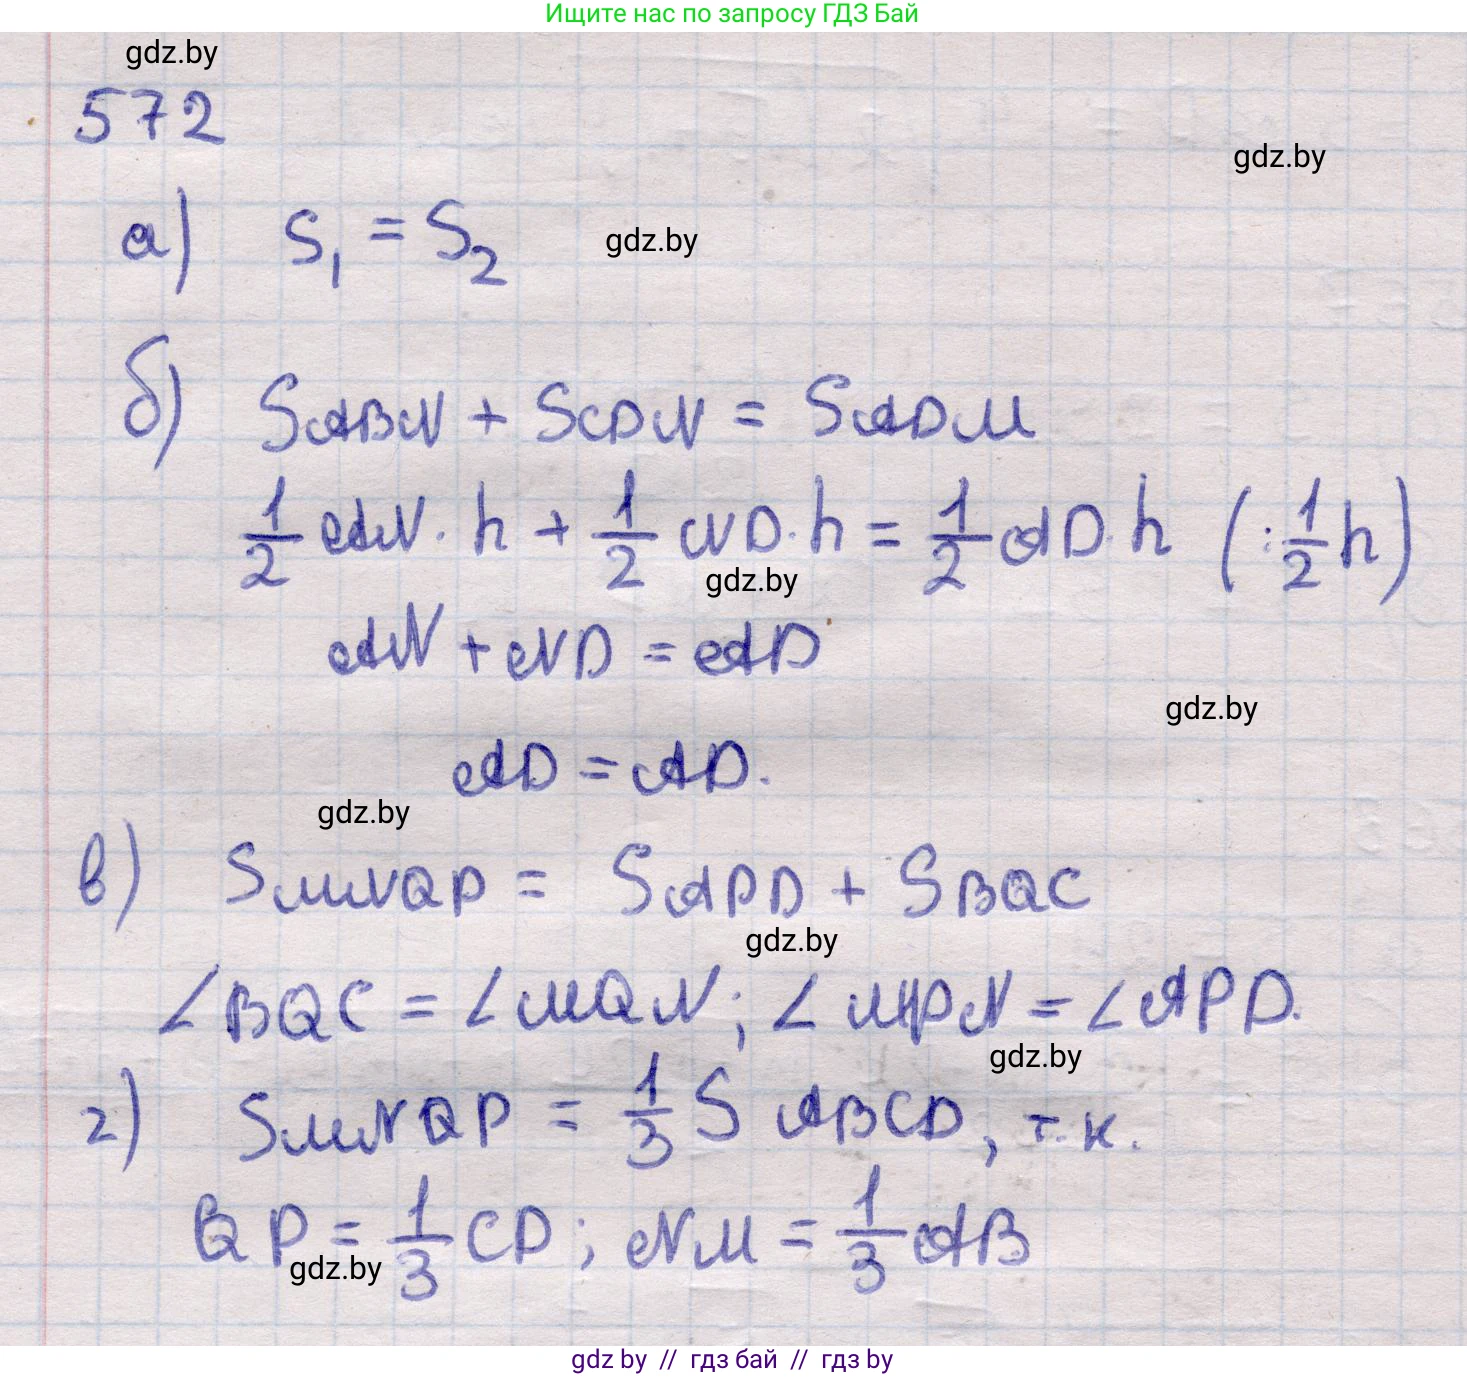 Ищите нас по запросу ГДЗ Бай
gdz.by
572
gdz.by
а) S₁ = S₂
gdz.by
б) SABN + SCDN = SADM
1/2 AN · h + 1/2 ND · h = 1/2 AD · h (: 1/2 h)
gdz.by
AN + ND = AD
gdz.by
AD = AD.
gdz.by
в) SMNQP = SAPD + SBQC
gdz.by
∠BQC = ∠MQN; ∠MPN = ∠APD.
gdz.by
г) SMNQP = 1/3 S ABCD, т.к.
QP = 1/3 CD; NM = 1/3 AB
gdz.by
gdz by // гдз бай // гдз by